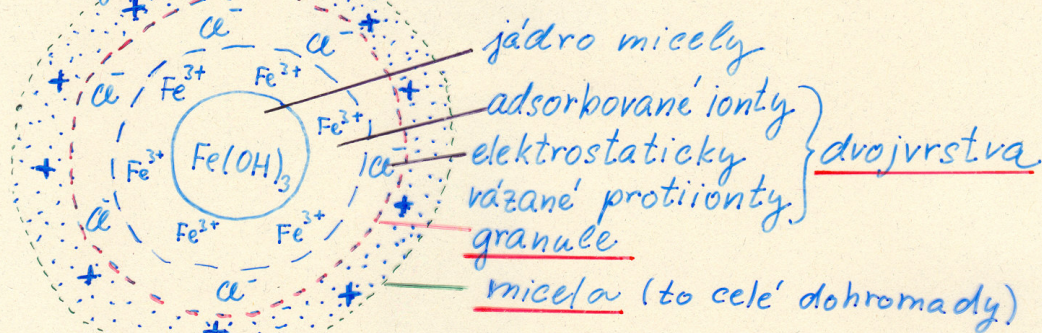 Cl⁻ Cl⁻
Fe³⁺ Fe³⁺
Cl⁻
Fe³⁺
Fe(OH)₃
Fe³⁺ Cl⁻
Cl⁻
Fe³⁺ Fe³⁺
Cl⁻
jádro micely
adsorbované ionty
elektrostaticky
vázané protiionty
dvojvrstva
granule
micela (to celé dohromady)